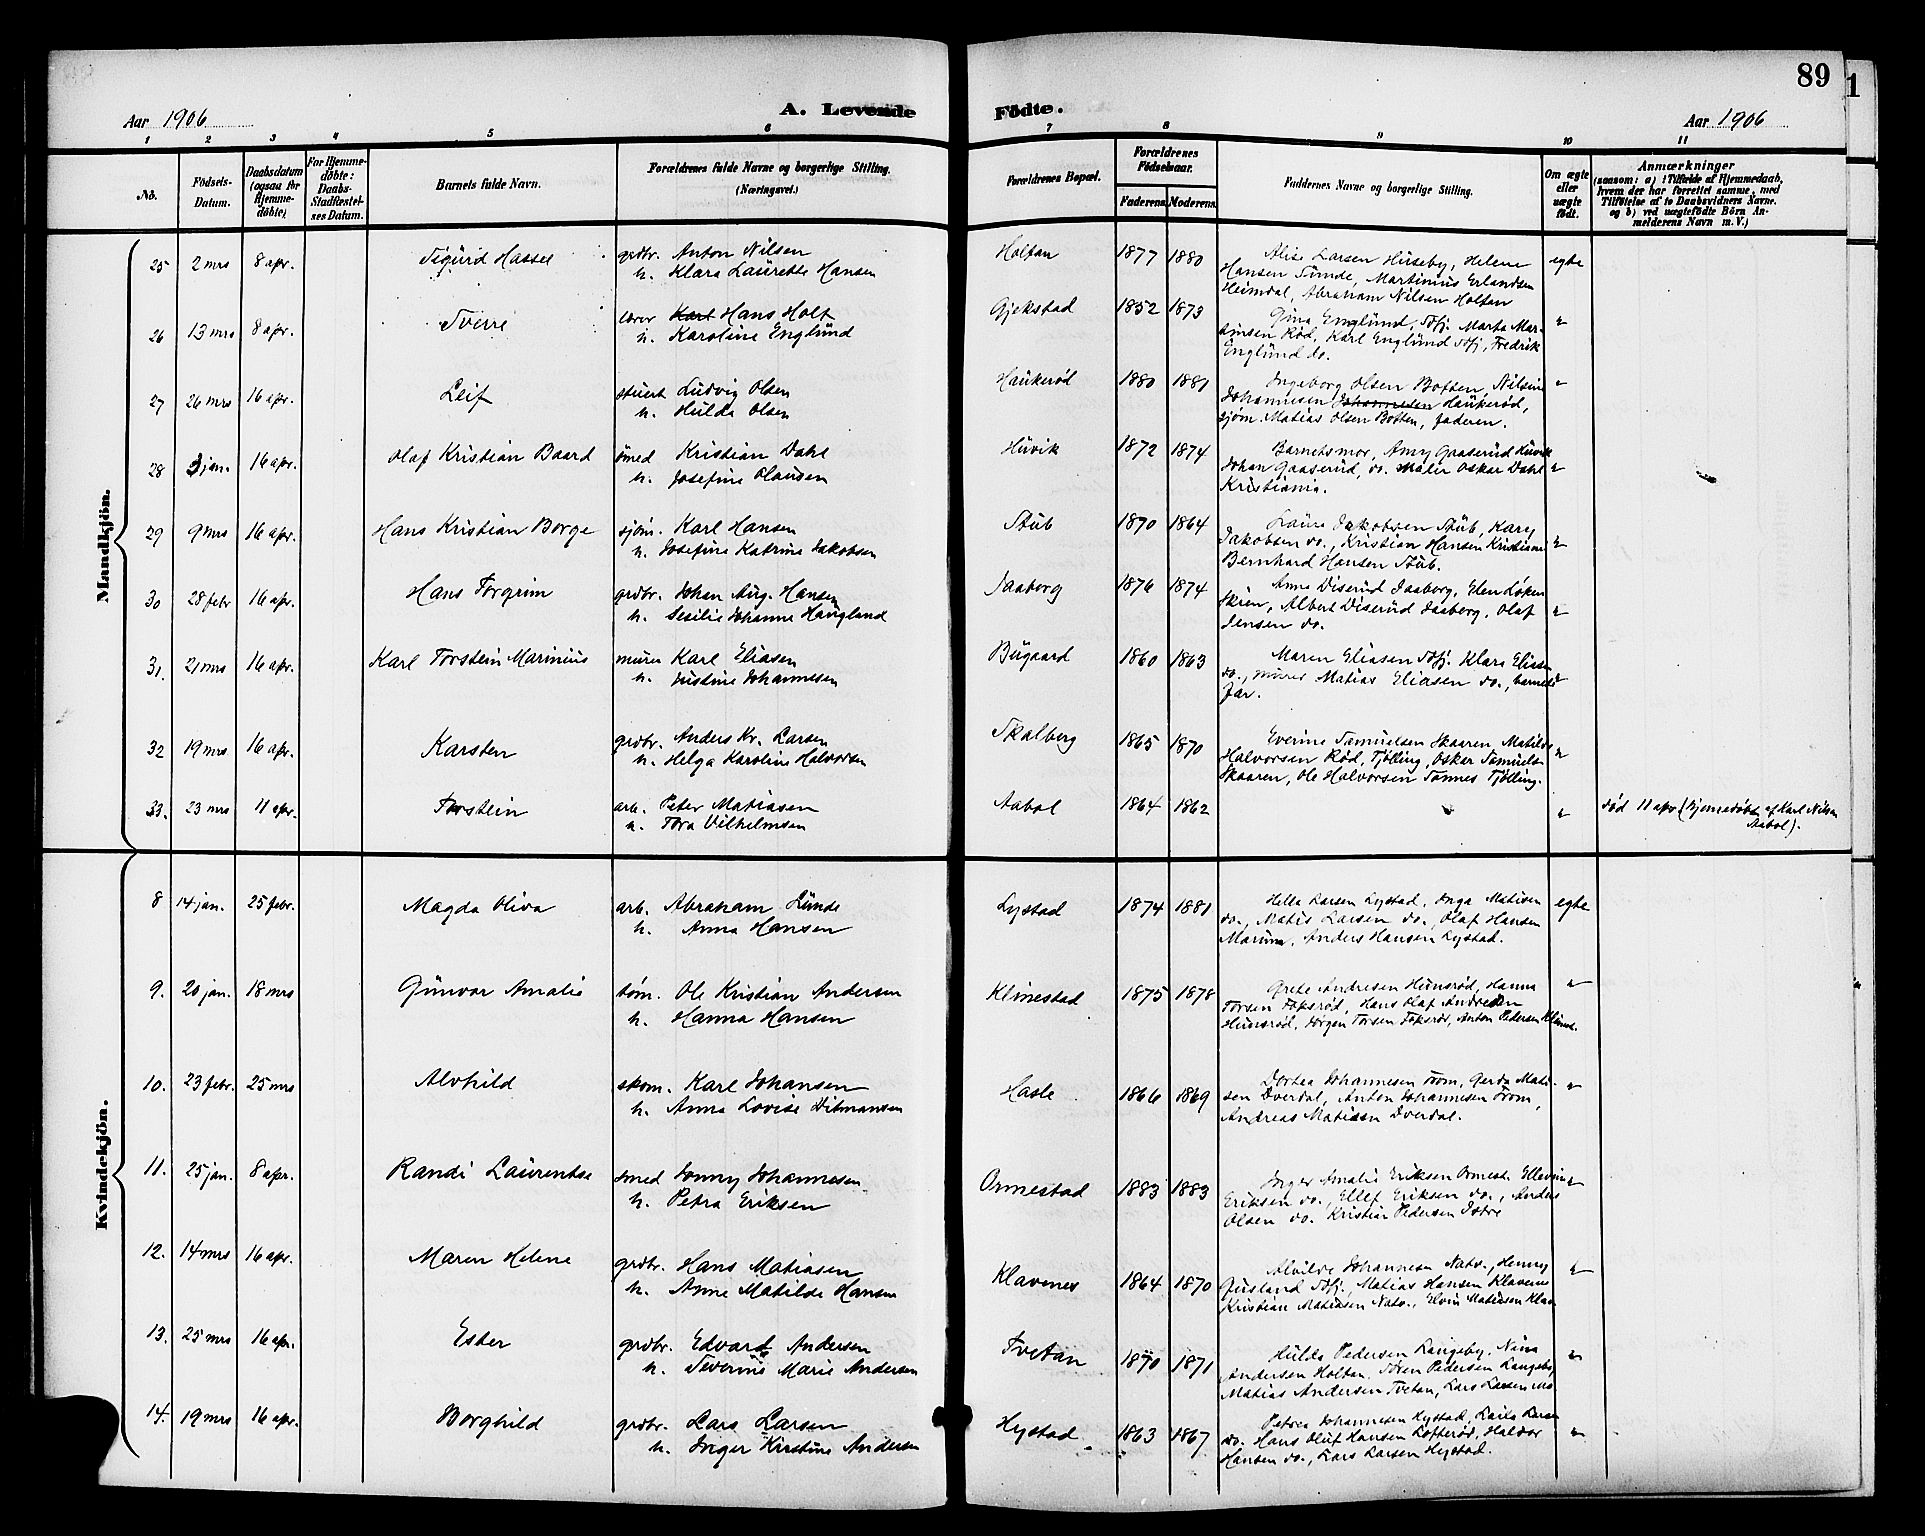 89
1
Aar 1906
A. Levende
Födte.
Aar 1906
1 2 3 4 5 6 7 8 9 10 11
No.
Födsels-Datum.
Daabsdatum (ogsaa for Hjemmedöbte)
For Hjemmedöbte: Daabs-Stadfæstelses Datum.
Barnets fulde Navn.
Forældrenes fulde Navne og borgerlige Stilling. (Næringsvei.)
Forældrenes Bopæl.
Forældrenes Födselsaar.
Faderens. Moderens.
Faddernes Navne og borgerlige Stilling.
Om ægte eller uægte födt.
Anmærkninger
(saasom: a) i Tilfælde af Hjemmedaab,
hvem der har forrettet samme, med
Tilföielse af to Daabsvidners Navne.
og b) ved uægtefödte Börn An-
melderens Navn m. V.)
Mandkjön.
25 2 mrs 8 apr. Sigurd Hassel grdbr. Anton Nilsen
h. Klara Laurette Hansen
Holtan 1877 1880 Alise Larsen Huseby, Helene
Hansen Sunde, Martinius Erlandsen
Heimdal, Abraham Nilsen Holtan
egte
26 13 mrs 8 apr. Sverre lærer Karl Hans Holt
h. Karoline Englund
Gjekstad 1852 1873 Gina Englund, Sfj. Marta Mar-
tinsen Rød, Karl Englund Sfj, Fredrik
Englund do.
"
27 26 mrs 16 apr. Leif stuert Ludvig Olsen
h. Hulda Olsen
Haukerød 1880 1881 Ingeborg Olsen Botten, Nilsine
Johannesen Johannesen Haukerød,
sjøm. Matias Olsen Botten, faderen.
"
28 3 jan. 16 apr. Olaf Kristian Baard smed Kristian Dahl
h. Josefine Olausen
Huvik 1872 1874 Barnetsmor, Amy Gaaserud Huvik
Johan Gaaserud, do. Maler Oskar Dahl
Kristiania.
"
29 9 mrs 16 apr. Hans Kristian Borge sjøm. Karl Hansen
h. Josefine Katrine Jakobsen
Stub 1870 1864 Laura Jakobsen Stub, Kary
Jakobsen do., Kristian Hansen Kristiania
Bernhard Hansen Stub.
"
30 28 febr 16 apr. Hans Torgrim grdbr. Johan Aug. Hansen
h. Sesilie Johanne Haugland
Jaaberg 1876 1874 Anne Diserud Jaaberg, Elen Løken
Skien, Albert Diserud Jaaberg, Olaf
Jensen do.
"
31. 21 mrs 16 apr. Karl Torstein Marinius murer Karl Eliasen
h. Justine Johannesen
Bugaard 1860 1863 Maren Eliasen Sfj. Klara Eliasen
do., murer Matias Eliasen do., barnets
far.
"
32 19 mrs 16 apr. Karsten grdbr. Anders Kr. Larsen
h. Helga Karoline Halvorsen
Skalberg 1865 1870 Everine Samuelsen Skaaren, Matilde
Halvorsen Rød, Tjølling, Oskar Samuelsen
Skaaren, Ole Halvorsen Sannes Tjølling.
"
33. 23 mrs 11 apr. Torstein arb. Peter Matiasen
h. Tora Vilhelmsen
Aabol 1864 1862 " død 11 apr (hjemmedøbt af Karl Nilsen
Aabol).
Kvindekjön.
8 14 jan. 25 febr. Magda Oliva arb. Abraham Lunde
h. Anna Hansen
Lystad 1874 1881 Hella Larsen Lystad, Inga Matisen
do., Matis Larsen do., Olaf Hansen
Marum, Anders Hansen Lystad.
egte
9. 20 jan. 18 mrs Gunvor Amalie tøm. Ole Kristian Andersen
h. Hanna Hansen
Klinestad 1875 1878 Grete Andresen Hunsrød, Hanna
Torsen Fokserød, Hans Olaf Andresen
Hunsrød, Jørgen Torsen Fokserød, Anton Pedersen Klinest.
"
10. 23 febr. 25 mrs Alvhild skom. Karl Johansen
h. Anna Lovise Ditmansen
Hasle 1866 1869 Dortea Johannesen From, Gerda Mati-
sen Dverdal, Anton Johannesen From,
Andreas Matisen Dverdal.
"
11. 25 jan. 8 apr. Randi Laurentse smed Jonny Johannesen
h. Petra Eriksen
Ormestad 1883 1883 Inger Amalie Eriksen Ormest. Ellevine
Eriksen do., Ellef Eriksen do., Anders
Olsen do. Kristian Pedersen Istre
"
12. 14 mrs 16 apr. Maren Helene grdbr. Hans Matiasen
h. Anne Matilde Hansen
Klavenes 1864 1870 Alvilde Johannesen Natv., Henny
Gusland Sfj., Matias Hansen Klavenes
Kristian Matiasen Natv., Elvin Matiasen Klav.
"
13. 25 mrs 16 apr. Ester grdbr. Edvard Andersen
h. Severine Marie Andersen
Tvetan 1870 1871 Hulda Pedersen Langeby, Nina
Andersen Holtan, Søren Pedersen Langeby,
Matias Andersen Tvetan, Lars Larsen Mo
"
14. 19 mrs 16 apr. Borghild grdbr. Lars Larsen
h. Inger Kirstine Andersen
Hystad 1863 1867 Petrea Johannesen Hystad, Laila Larsen
do. Hans Oluf Hansen Lofterød, Halvor
Hansen do., Lars Larsen Hystad.
"